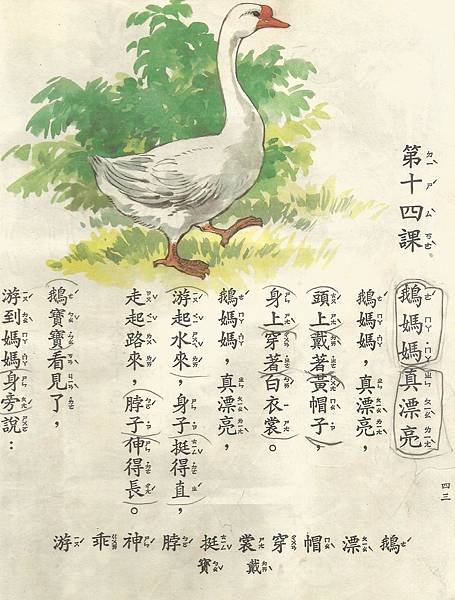 第十四課
鵝媽媽真漂亮
鵝媽媽，真漂亮，
頭上戴著黃帽子，
身上穿著白衣裳。
鵝媽媽，真漂亮，
游起水來，身子挺得直，
走起路來，脖子伸得長。
鵝寶寶看見了，
游到媽媽身旁說：
四三
鵝漂帽穿裳挺脖神乖游
戴寶